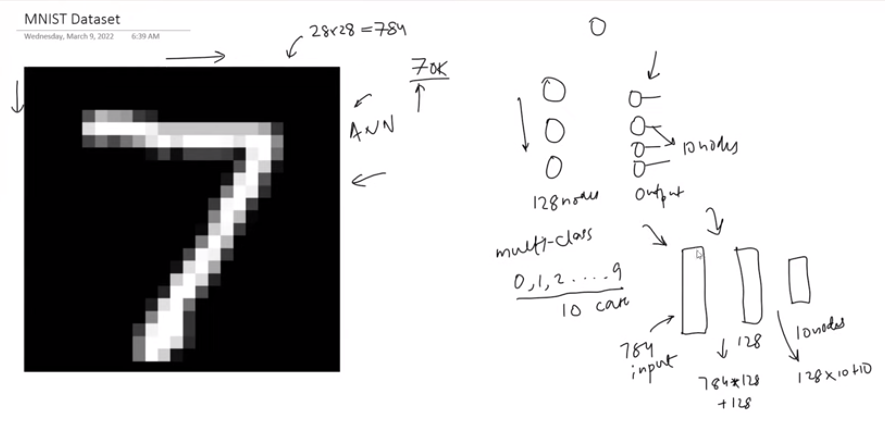 MNIST Dataset
Wednesday, March 9, 2022 6:39 AM
28x28 = 784
70K
ANN
10 nodes
128 nodes
Output
multi-class
0,1,2.....9
10
784
input
128
10 nodes
784*128
+128
128x10+10